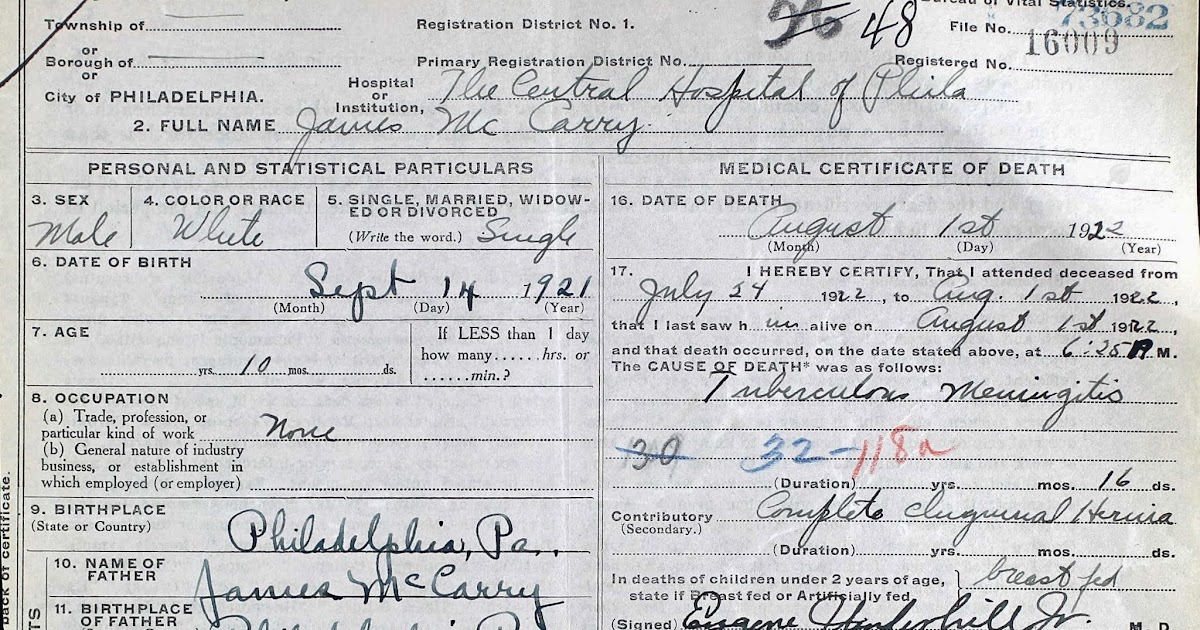 Bureau of Vital Statistics.
Township of
Registration District No. 1.
26 48
File No. 73682
16009
or
Borough of
Primary Registration District No.
Registered No.
or
City of PHILADELPHIA.
Hospital or Institution, The Central Hospital of Phila
2. FULL NAME James Mc Carry.
PERSONAL AND STATISTICAL PARTICULARS
3. SEX
Male
4. COLOR OR RACE
White
5. SINGLE, MARRIED, WIDOW-
ED OR DIVORCED
(Write the word.) Single
6. DATE OF BIRTH
Sept 14 1921
(Month) (Day) (Year)
7. AGE
yrs. 10 mos. ds.
If LESS than 1 day
how many......hrs. or
......min.?
8. OCCUPATION
(a) Trade, profession, or
particular kind of work None
(b) General nature of industry
business, or establishment in
which employed (or employer)
9. BIRTHPLACE
(State or Country)
Philadelphia, Pa.
10. NAME OF
FATHER
James McCarry
11. BIRTHPLACE
OF FATHER
back of certificate.
MEDICAL CERTIFICATE OF DEATH
16. DATE OF DEATH
August 1st 1922
(Month) (Day) (Year)
17. I HEREBY CERTIFY, That I attended deceased from
July 24 1922, to Aug. 1st 1922,
that I last saw him alive on August 1st 1922,
and that death occurred, on the date stated above, at 6:25 M.
The CAUSE OF DEATH* was as follows:
Tuberculous Meningitis
30 32-118a
(Duration) yrs. mos. 16 ds.
Contributory Complete Inguinal Hernia
(Secondary.)
(Duration) yrs. mos. ds.
In deaths of children under 2 years of age,
state if Breast fed or Artificially fed breast fed
(Signed) Eugene Jr. M. D.